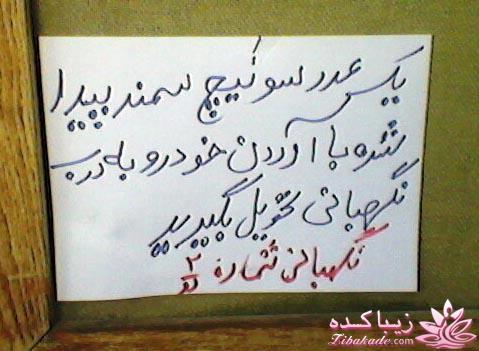 یکس عدد سوئیچ سمند پیدا
شده با آوردن خودرو به درب
نگهبانی تحویل بگیرید
نگهبانی شماره ۲
زیباکده
Zibakade.com